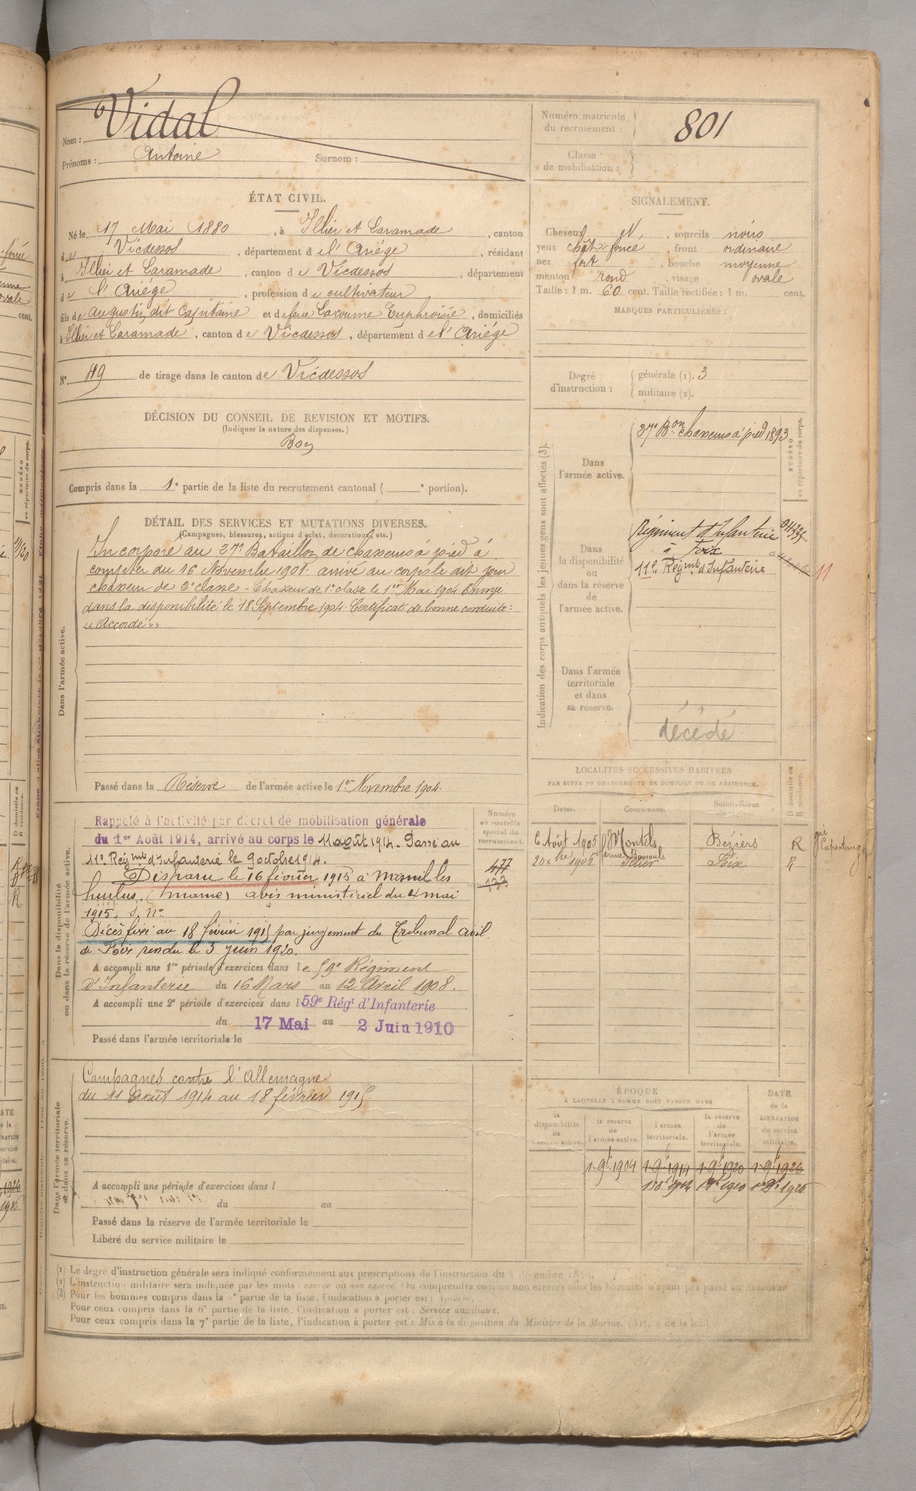 Nom : Vidal
Prénoms : Antoine Surnom :
Numéro matricule du recrutement : 801
Classe de mobilisation :
ÉTAT CIVIL.
Né le 17 Mai 1880, à Illier et Laramade, canton
de Vicdessos, département de l'Ariége, résidant
à Illier et Laramade, canton de Vicdessos, département
de l'Ariége, profession de cultivateur
fils de Augustin dit Capitaine et de feue Lacoume Euphrosie, domiciliés
à Illier et Laramade, canton de Vicdessos, département de l'Ariége
N° 119 de tirage dans le canton de Vicdessos
SIGNALEMENT.
Cheveux, sourcils noirs
yeux chât. foncé, front ordinaire
nez fort, bouche moyenne
menton rond, visage ovale
Taille : 1 m. 60 cent. Taille rectifiée : 1 m. cent.
MARQUES PARTICULIÈRES :
Degré d'instruction : générale (1). 3
militaire (2).
DÉCISION DU CONSEIL DE REVISION ET MOTIFS.
(Indiquer la nature des dispenses.)
Bon
Compris dans la 1e partie de la liste du recrutement cantonal ( e portion).
DÉTAIL DES SERVICES ET MUTATIONS DIVERSES.
(Campagnes, blessures, actions d'éclat, décorations, etc.)
Dans l'armée active.
Incorporé au 27e Bataillon de chasseurs à pied à
compter du 16 Novembre 1901. arrivé au corps le dit jour
chasseur de 2e classe. Chasseur de 1e classe le 1er Mai 1904. Envoyé
dans la disponibilité le 18 Septembre 1904. Certificat de bonne conduite :
Accordé.
Passé dans la Réserve de l'armée active le 1er Novembre 1904.
Indication des corps auxquels les jeunes gens sont affectés (3).
Dans l'armée active.
27e Bon chasseurs à pied 1893
Dans la disponibilité ou dans la réserve de l'armée active.
Régiment d'Infanterie
à Foix
11e Régiment d'Infanterie
11
Dans l'armée territoriale et dans sa réserve.
décédé
Dans la disponibilité ou dans la réserve de l'armée active.
Numéro au contrôle spécial du recrutement.
Rappelé à l'activité par décret de mobilisation générale
du 1er Août 1914, arrivé au corps le 11 août 1914. Passé au
11e Régiment d'Infanterie le 9 octobre 1914.
Disparu le 16 février 1915 à Mesnil les
Hurlus, (Marne) avis ministeriel du 4 mai
1915.
Décès fixé au 18 février 1915 par jugement du Tribunal civil
de Foix rendu le 3 juin 1920.
A accompli une 1re période d'exercices dans le 59e Régiment
d'Infanterie du 16 Mars au 12 Avril 1908.
A accompli une 2e période d'exercices dans l 59e Régt d'Infanterie
du 17 Mai au 2 Juin 1910
Passé dans l'armée territoriale le
LOCALITÉS SUCCESSIVES HABITÉES
PAR SUITE DE CHANGEMENTS DE DOMICILE OU DE RÉSIDENCE.
Dates. Communes. Subdivisions
6 Août 1905 Montels Béziers R Capestang
1906 Foix R
Dans l'armée territoriale et dans sa réserve.
Campagnes contre l'Allemagne
du 11 août 1914 au 18 février 1915
A accompli une période d'exercices dans l
du au
Passé dans la réserve de l'armée territoriale le
Libéré du service militaire le
ÉPOQUE
À LAQUELLE L'HOMME DOIT PASSER DANS
DATE de la LIBÉRATION du service militaire.
la disponibilité de l'armée active. la réserve de l'armée active. l'armée territoriale. la réserve de l'armée territoriale.
(1) Le degré d'instruction générale sera indiqué conformément aux prescriptions de l'instruction du
(2) L'instruction militaire sera indiquée par les mots : exercé ou non exercé. On comprendra comme non exercés tous les hommes n'ayant pas passé au drapeau
(3) Pour les hommes compris dans la partie de la liste, l'indication à porter est :
Pour ceux compris dans la 6e partie de la liste, l'indication à porter est : Service auxiliaire.
Pour ceux compris dans la 7e partie de la liste, l'indication à porter est : Mis à la disposition du Ministre de la Marine.